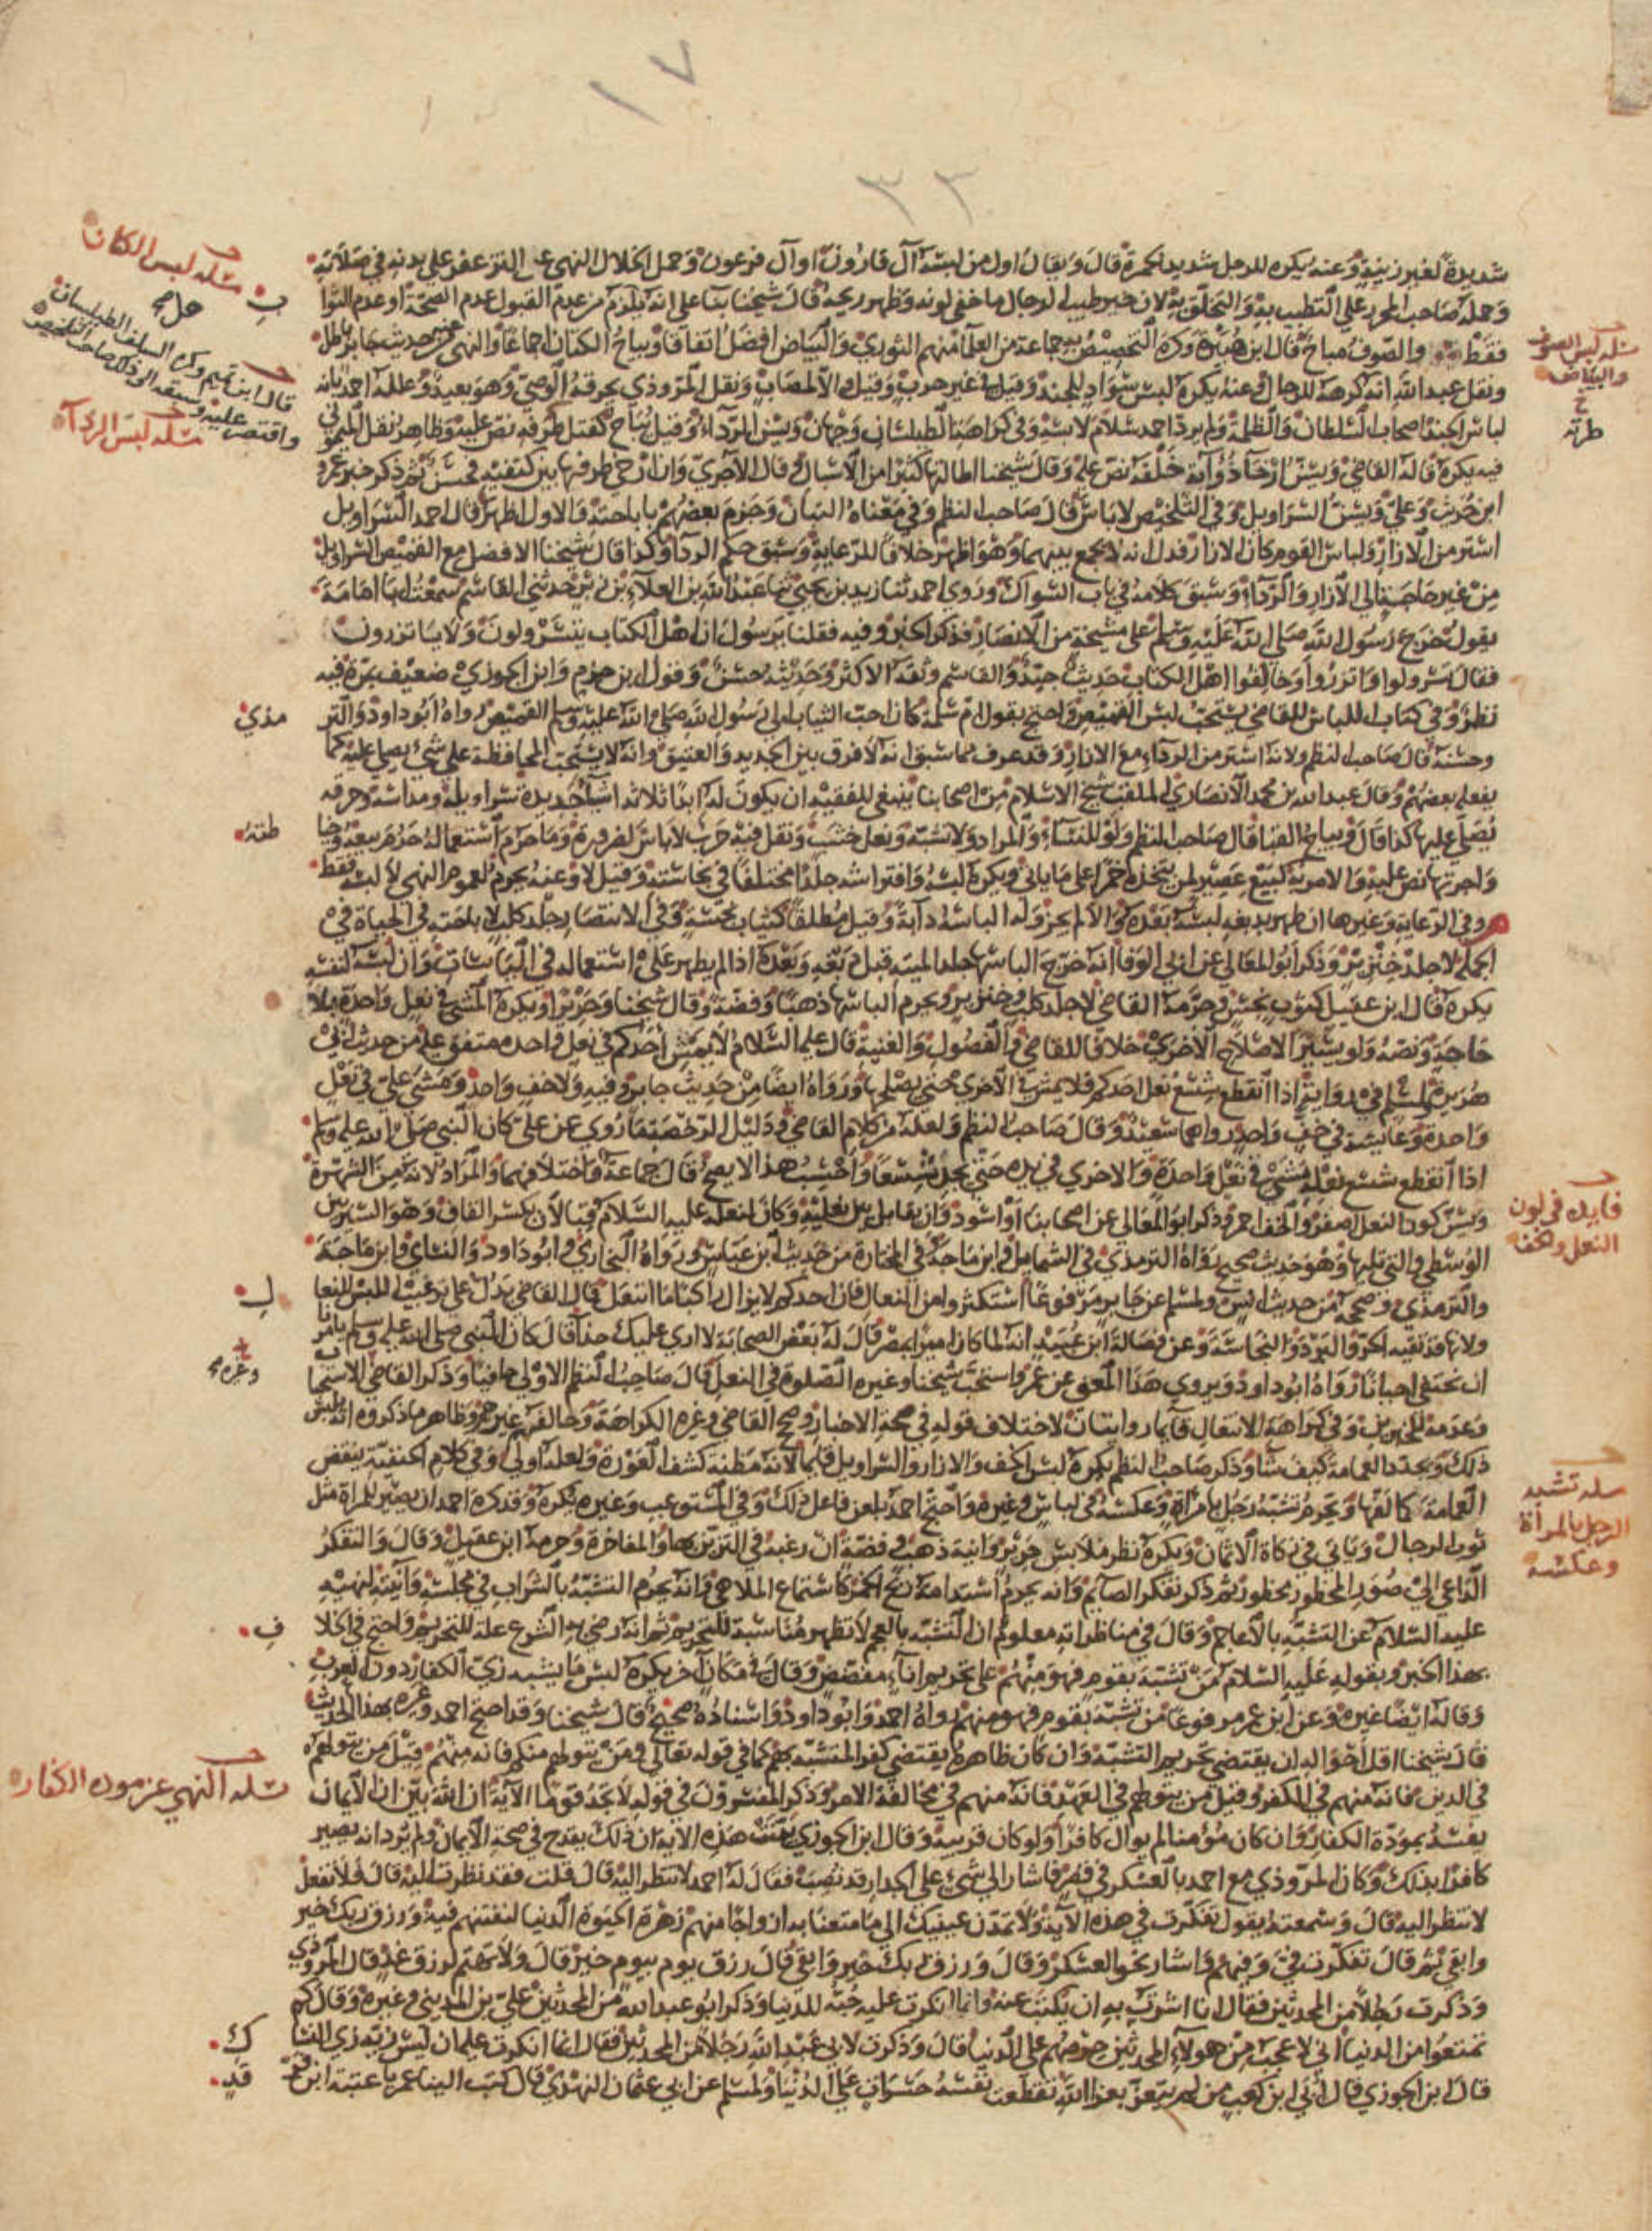 ١٧
٣٣
شديدة لغير زينة وعنه يكره للرجل شديد الحمرة قال ويقال اول من لبسه آل قارون او آل فرعون وحمل الخلال النهي عن التزعفر على بدنه في صلاته
وحمله صاحب المحرر على التطيب به والتخلق به لان خير طيب الرجال ما خفي لونه وظهر ريحه قال شيخنا بناء على انه يلزم من عدم القبول عدم الصحة او عدم الثوا
فقط والصوف مباح قال ابن هبيرة وكره التخصيص به جماعة من العلماء منهم الثوري والبياض افضل اتفاقا ويباح الكتان اجماعا والنهي عنه من حديث جابر باطل
ونقل عبد الله انه كرهه للرجال وعنه يكره لبس سواد للجند وقيل في غير حرب وقيل والا لمصاب ونقل المروذي يحرقه الوصي وهو بعيد وعلله احمد بانه
لباس الجند اصحاب السلطان والظلمة ولم يرد احمد سلام لابسه وفي كراهة الطيلسان وجهان ويسن الرداء وقيل يباح كفتل طرفه نص عليه وظاهر نقل الميموني
فيه يكره قاله القاضي ويسن ارخاء ذؤابة خلفه نص عليه وقال شيخنا اطالتها كثيرا من الاسبال وقال الآجري وان ارخى طرفها بين كتفيه فحسن ثم ذكر خبر عمرو
ابن حريث وعلي ويسن السراويل وفي التلخيص لا باس قال صاحب النظم وفي معناه التبان وجزم بعضهم باباحته والاول اظهر قال احمد السراويل
استر من الازار ولباس القوم كان الازار فدل انه لا يجمع بينهما وهو اظهر خلافا للرعاية وسبق حكم الرداء وكذا قال شيخنا الافضل مع القميص السراويل
من غير حاجة الى الازار والرداء وسبق كلامه في باب السواك وروى احمد ثنا زيد بن يحيى ثنا عبد الله بن العلاء بن زبر حدثني القاسم سمعت ابا امامة
يقول خرج رسول الله صلى الله عليه وسلم على مشيخة من الانصار فذكر الخبر وفيه فقلنا يرسول ان اهل الكتاب يتسرولون ولا يأتزرون
فقال تسرولوا واتزروا وخالفوا اهل الكتاب حديث جيد والقاسم وثقه الاكثر وحديثه حسن وقول ابن حزم وابن الجوزي ضعيف بمرة فيه
نظر وفي كتاب اللباس للقاضي يستحب لبس القميص واحتج بقول ام سلمة كان احب الثياب الى رسول الله صلى الله عليه وسلم القميص رواه ابو داود والتر
مذي
وحسنه قال صاحب النظم ولانه استر من الرداء مع الازار وقد عرف مما سبق انه لا فرق بين الجديد والعتيق وانه لا يستحب المحافظة على شيء يصلي عليه كما
يفعله بعضهم وقال عبد الله بن محمد الانصاري الملقب شيخ الاسلام من اصحابنا ينبغي للفقيه ان يكون له ابدا ثلاثة اشياء جديدة سراويله ومداسه وخرقة
يصلي عليها كذا قال ويباح القبا قال صاحب النظم ولو للنساء والمراد ولا تشبه ونعل خشب ونقل فيه حرب لا باس لضرورة وما حرم استعماله حرم بيعه وخيا
طته
واجرتها نص عليه والامر به كبيع عصير لمن يتخذه خمرا على ما ياتي ويكره لبسه وافتراشه جلدا مختلفا في نجاسته وقيل لا وعنه يحرم لعموم النهي لا لبسه فقط
وفي الرعاية وغيرها ان طهر بدبغه لبسه بعده والا لم يجز وله الباسه دابة وقيل مطلقا كثياب نجسة وفي الانتصار جلد كلب لاباحته في الحياة في
الجملة لا جلد خنزير وذكر ابو المعالي عن ابي الوفا انه خرج الباسها جلد الميتة قبل دبغه وبعده اذا لم يطهر على استعماله في اليابسات وان لبسه لنفسه
يكره قال ابن عقيل كثوب نجس وحرمه القاضي لا جلد كلب وخنزير ويحرم الباسها ذهبا وفضة وقال شيخنا وحريرا ويكره المشي في نعل واحدة بلا
حاجة ونصه ولو يسيرا لاصلاح الاخرى خلافا للقاضي والفصول والغنية قال عليه السلام لا يمش احدكم في نعل واحدة متفق عليه من حديث ابي
هريرة ولمسلم في رواية اذا انقطع شسع نعل احدكم فلا يمش في الاخرى حتى يصلحها ورواه ايضا من حديث جابر وفيه ولا خف واحد ومشى علي في نعل
واحدة وعايشة في خف واحد رواهما سعيد وقال صاحب النظم ولعله من كلام القاضي ودليل الرخصة ما روي عن علي كان النبي صلى الله عليه وسلم
اذا انقطع شسع نعله مشى في نعل واحدة والاخرى في يده حتى يجد شسعا واحسب هذا لا يصح قال جماعة واختلافهما والمراد لانه من الشهرة
ويسن كون النعل اصفر والخف احمر وذكر ابو المعالي عن اصحابنا او اسود وان يقابل بين نعليه وكان لنعله عليه السلام قبالان بكسر القاف وهو السير بين
الوسطى والتي تليها وهو حديث صحيح رواه الترمذي في الشمايل وابن ماجة وفي المختارة من حديث ابن عباس ورواه البخاري وابو داود والنسائي وابن ماجة
والترمذي وصححه من حديث انس ولمسلم عن جابر مرفوعا استكثروا من النعال فان احدكم لا يزال راكبا ما انتعل قال القاضي يدل على ترغيب اللبس للنعا
ل
ولانها قد تقيه الحر والبرد والنجاسة وعن فضالة ابن عبيد انه لما كان اميرا بمصر قال له بعض الصحابة لا ارى عليك حذاء قال كان النبي صلى الله عليه وسلم يامرنا
ان نحتفي احيانا رواه ابو داود ويروى هذا المعنى عن عمر واستحب شيخنا وغيره الصلوة في النعل قال صاحب النظم الاولى حافيا وذكر القاضي الاستحبا
ب
وعدمه للخبرين وفي كراهة الانتعال قايما روايتان لاختلاف قوله في صحة الاخبار وصحح القاضي وغيره الكراهة وخالفهم غيرهم وظاهر ما ذكروه انه يلبس
ذلك ويجدد العمامة كيف شاء وذكر صاحب النظم يكره لبس الخف والازار والسراويل قايما لانه مظنة كشف العورة ولعله اولى وفي كلام الحنفية ينقض
العمامة كما لفها ويحرم تشبه رجل بامرأة وعكسه في لباس وغيره واحتج احمد بلعن فاعل ذلك وفي المستوعب وغيره يكره وقد كره احمد ان يصير للمراة مثل
ثوب الرجال وياتي في زكاة الاثمان ويكره نظر ملابس حرير وانية ذهب وفضة ان رغبه في التزين بها والمفاخرة وحرمه ابن عقيل وقال والتفكر
الداعي الى صور المحظور محظور ثم ذكر تفكر الصايم وانه يحرم استدامة ريح الخمر كاستماع الملاهي وانه يحرم التشبه بالشراب في مجلسه وآنيته لنهيه
عليه السلام عن التشبه بالاعاجم وقال في مناظراته معلوم ان التشبه بالعجم لا تظهر مناسبة للتحريم ثم انه رضي به الشرع علة للتحريم واحتج في الخلا
ف
بهذا الخبر وبقوله عليه السلام من تشبه بقوم فهو منهم على تحريم اناء مفضض وقال في مكان اخر يكره لبس ما يشبه زي الكفار دون العرب
وقاله ايضا غيره وعن ابن عمر مرفوعا من تشبه بقوم فهو منهم رواه احمد وابو داود واسناده صحيح قال شيخنا وقد احتج احمد وغيره بهذا الحديث
قال شيخنا اقل احواله ان يقتضي تحريم التشبه وان كان ظاهره يقتضي كفر المتشبه بهم كما في قوله تعالى ومن يتولهم منكم فانه منهم قيل من يتولهم
في الدين فانه منهم في الكفر وقيل من يتولهم في العهد فانه منهم في مخالفة الامر وذكر المفسرون في قوله لا تجد قوما الآية ان الله بين ان الايمان
يفسد بمودة الكفار وان كان مؤمنا لم يوال كافرا ولو كان قريبه وقال ابن الجوزي بينت هذه الاية ان ذلك يقدح في صحة الايمان ولم يرد انه يصير
كافرا بذلك وكان المروذي مع احمد بالعسكر في قصر فاشار الى شيء على الجدار قد نصب فقال له احمد لا تنظر اليه قال قلت فقد نظرت اليه قال فلا تفعل
لا تنظر اليه قال وسمعته يقول تفكرت في هذه الآية ولا تمدن عينيك الى ما متعنا به ازواجا منهم زهرة الحيوة الدنيا لنفتنهم فيه ورزق ربك خير
وابقى ثم قال تفكرت في وفيهم واشار نحو العسكر وقال ورزق ربك خير وابقى قال رزق يوم بيوم خير قال ولا تهتم لرزق غد قال المروذي
وذكرت رجلا من المحدثين فقال انا اشرت به ان يكتب عنه وانما انكرت عليه حبه للدنيا وذكر ابو عبد الله من المحدثين علي بن المديني وغيره وقال كم
تمتعوا من الدنيا اني لاعجب من هولاء المحدثين حرصهم على الدنيا قال وذكرت لابي عبد الله رجلا من المحدثين فقال انما انكرت عليه ان ليس زيه زي النسا
ك
قال ابن الجوزي قال أبي ابن كعب من لم يتعز بعزاء الله تقطعت نفسه حسرات على الدنيا ولمسلم عن ابي عثمان النهدي قال كتب الينا عمر يا عتبة ابن فر
قد
مسئله لبس الكتان
قال ابن تميم وكره السلف الطيلسان
واقتصر عليه
مسئله لبس الرداء
مسئله لبس الصوف
والبياض
طرته
فايده في لون
النعل والخف
وغيره
مسله تشبه
الرجل بالمرأة
وعكسه
مسله النهي عن موده الكفار